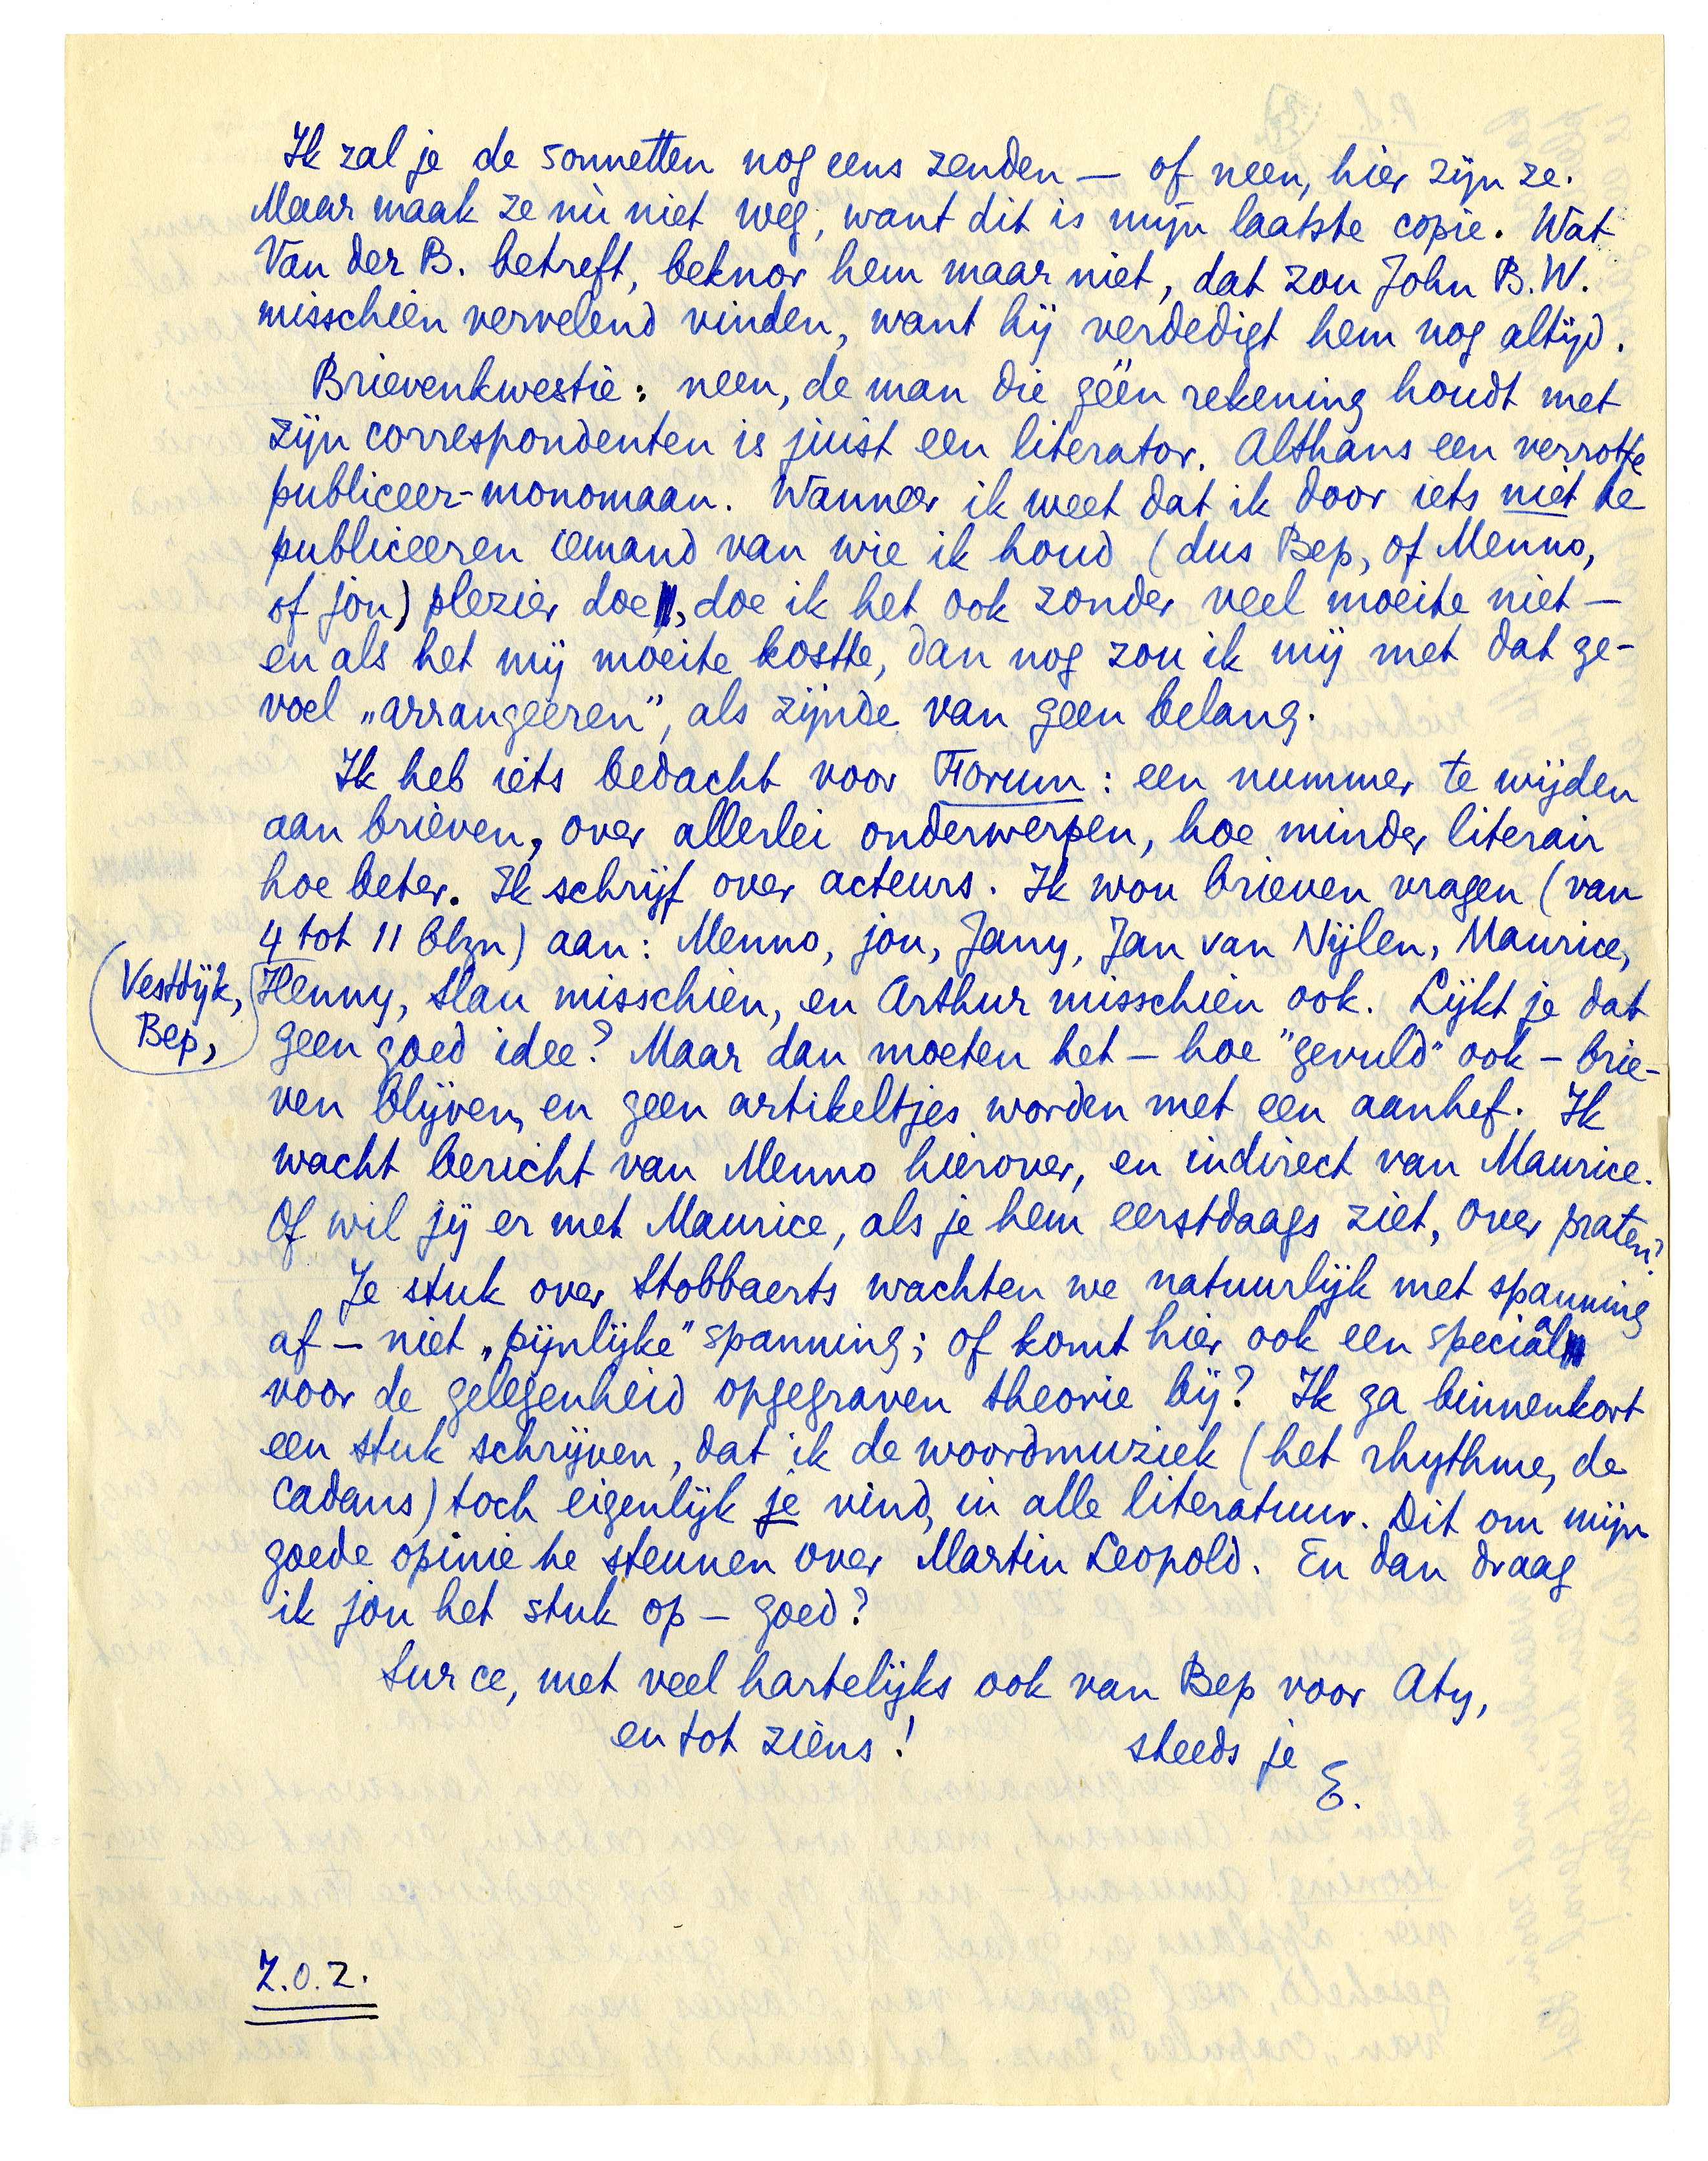 Ik zal je de sonnetten nog eens zenden — of neen, hier zijn ze.
Maar maak ze nù niet weg, want dit is mijn laatste copie. Wat
Van der B. betreft, beknor hem maar niet, dat zou John B.W.
misschien vervelend vinden, want hij verdedigt hem nog altijd.
Brievenkwestie: neen, de man die géén rekening houdt met
zijn correspondenten is juist een literator. Althans een verrotte
publiceer-monomaan. Wanneer ik weet dat ik door iets niet te
publiceeren iemand van wie ik houd (dus Bep, of Menno,
of jou) plezier doe, doe ik het ook zonder veel moeite niet —
en als het mij moeite kostte, dan nog zou ik mij met dat ge-
voel „arrangeeren”, als zijnde van geen belang.
Ik heb iets bedacht voor Forum: een nummer te wijden
aan brieven, over allerlei onderwerpen, hoe minder literair
hoe beter. Ik schrijf over acteurs. Ik wou brieven vragen (van
4 tot 11 blzn) aan: Menno, jou, Jany, Jan van Nijlen, Maurice,
Vestdijk,
Bep,
Henny, Slau misschien, en Arthur misschien ook. Lijkt je dat
geen goed idee? Maar dan moeten het — hoe "gevuld" ook — brie-
ven blijven, en geen artikeltjes worden met een aanhef. Ik
wacht bericht van Menno hierover, en indirect van Maurice.
Of wil jij er met Maurice, als je hem eerstdaags ziet, over praten?
Je stuk over Stobbaerts wachten we natuurlijk met spanning
af — niet „pijnlijke” spanning; of komt hier ook een speciaal
voor de gelegenheid opgegraven theorie bij? Ik ga binnenkort
een stuk schrijven, dat ik de woordmuziek (het rhythme, de
cadans) toch eigenlijk je vind, in alle literatuur. Dit om mijn
goede opinie te steunen over Martin Leopold. En dan draag
ik jou het stuk op — goed?
Sur ce, met veel hartelijks ook van Bep voor Aty,
en tot ziens! steeds je
E.
Z.O.Z.